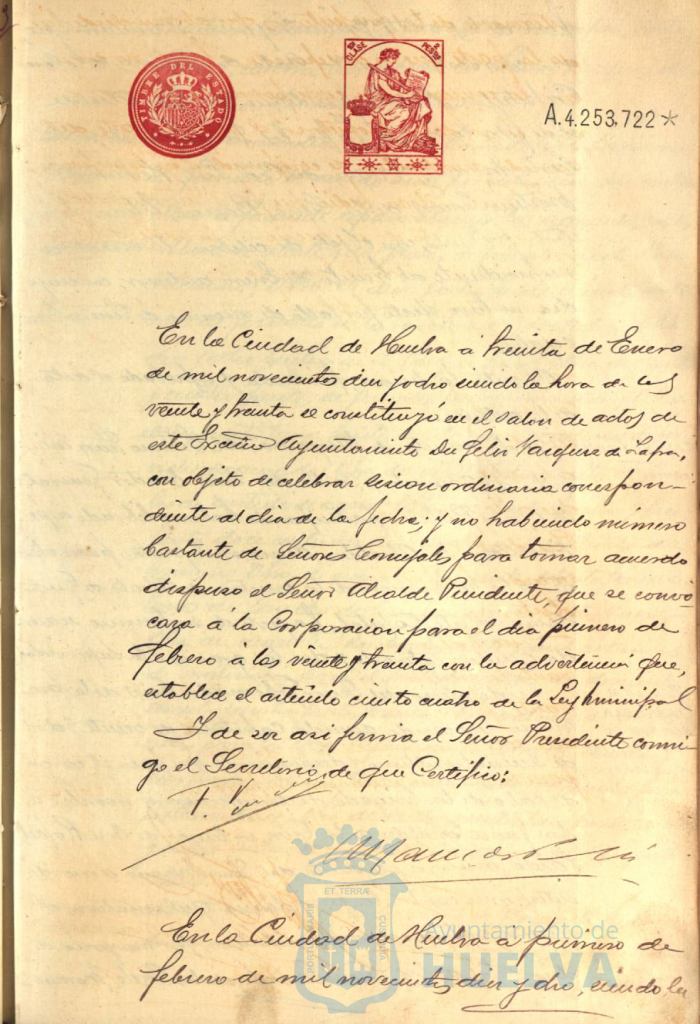 TIMBRE DEL ESTADO
CLASE
PESTAS
A.4.253.722*
En la Ciudad de Huelva á treinta de Enero
de mil novecientos diez y ocho siendo la hora de las
veinte y treinta se constituyó en el salon de actos de
este Excmo Ayuntamiento Don Félix Vazquez de Zafra,
con objeto de celebrar sesion ordinaria correspon-
diente al dia de la fecha; y no habiendo número
bastante de Señores Concejales para tomar acuerdo
dispuso el Señor Alcalde Presidente, que se convo
cara á la Corporacion para el dia primero de
febrero á las veinte y treinta con la advertencia que,
establece el artículo ciento cuatro de la Ley Municipal
Y de ser asi firma el Señor Presidente conmi
go el Secretario de que Certifico:
ET TERRÆ
PORTUS MARIS
CUSTODIA
Ayuntamiento de
HUELVA
En la Ciudad de Huelva á primero de
febrero de mil novecientos diez y ocho, siendo la